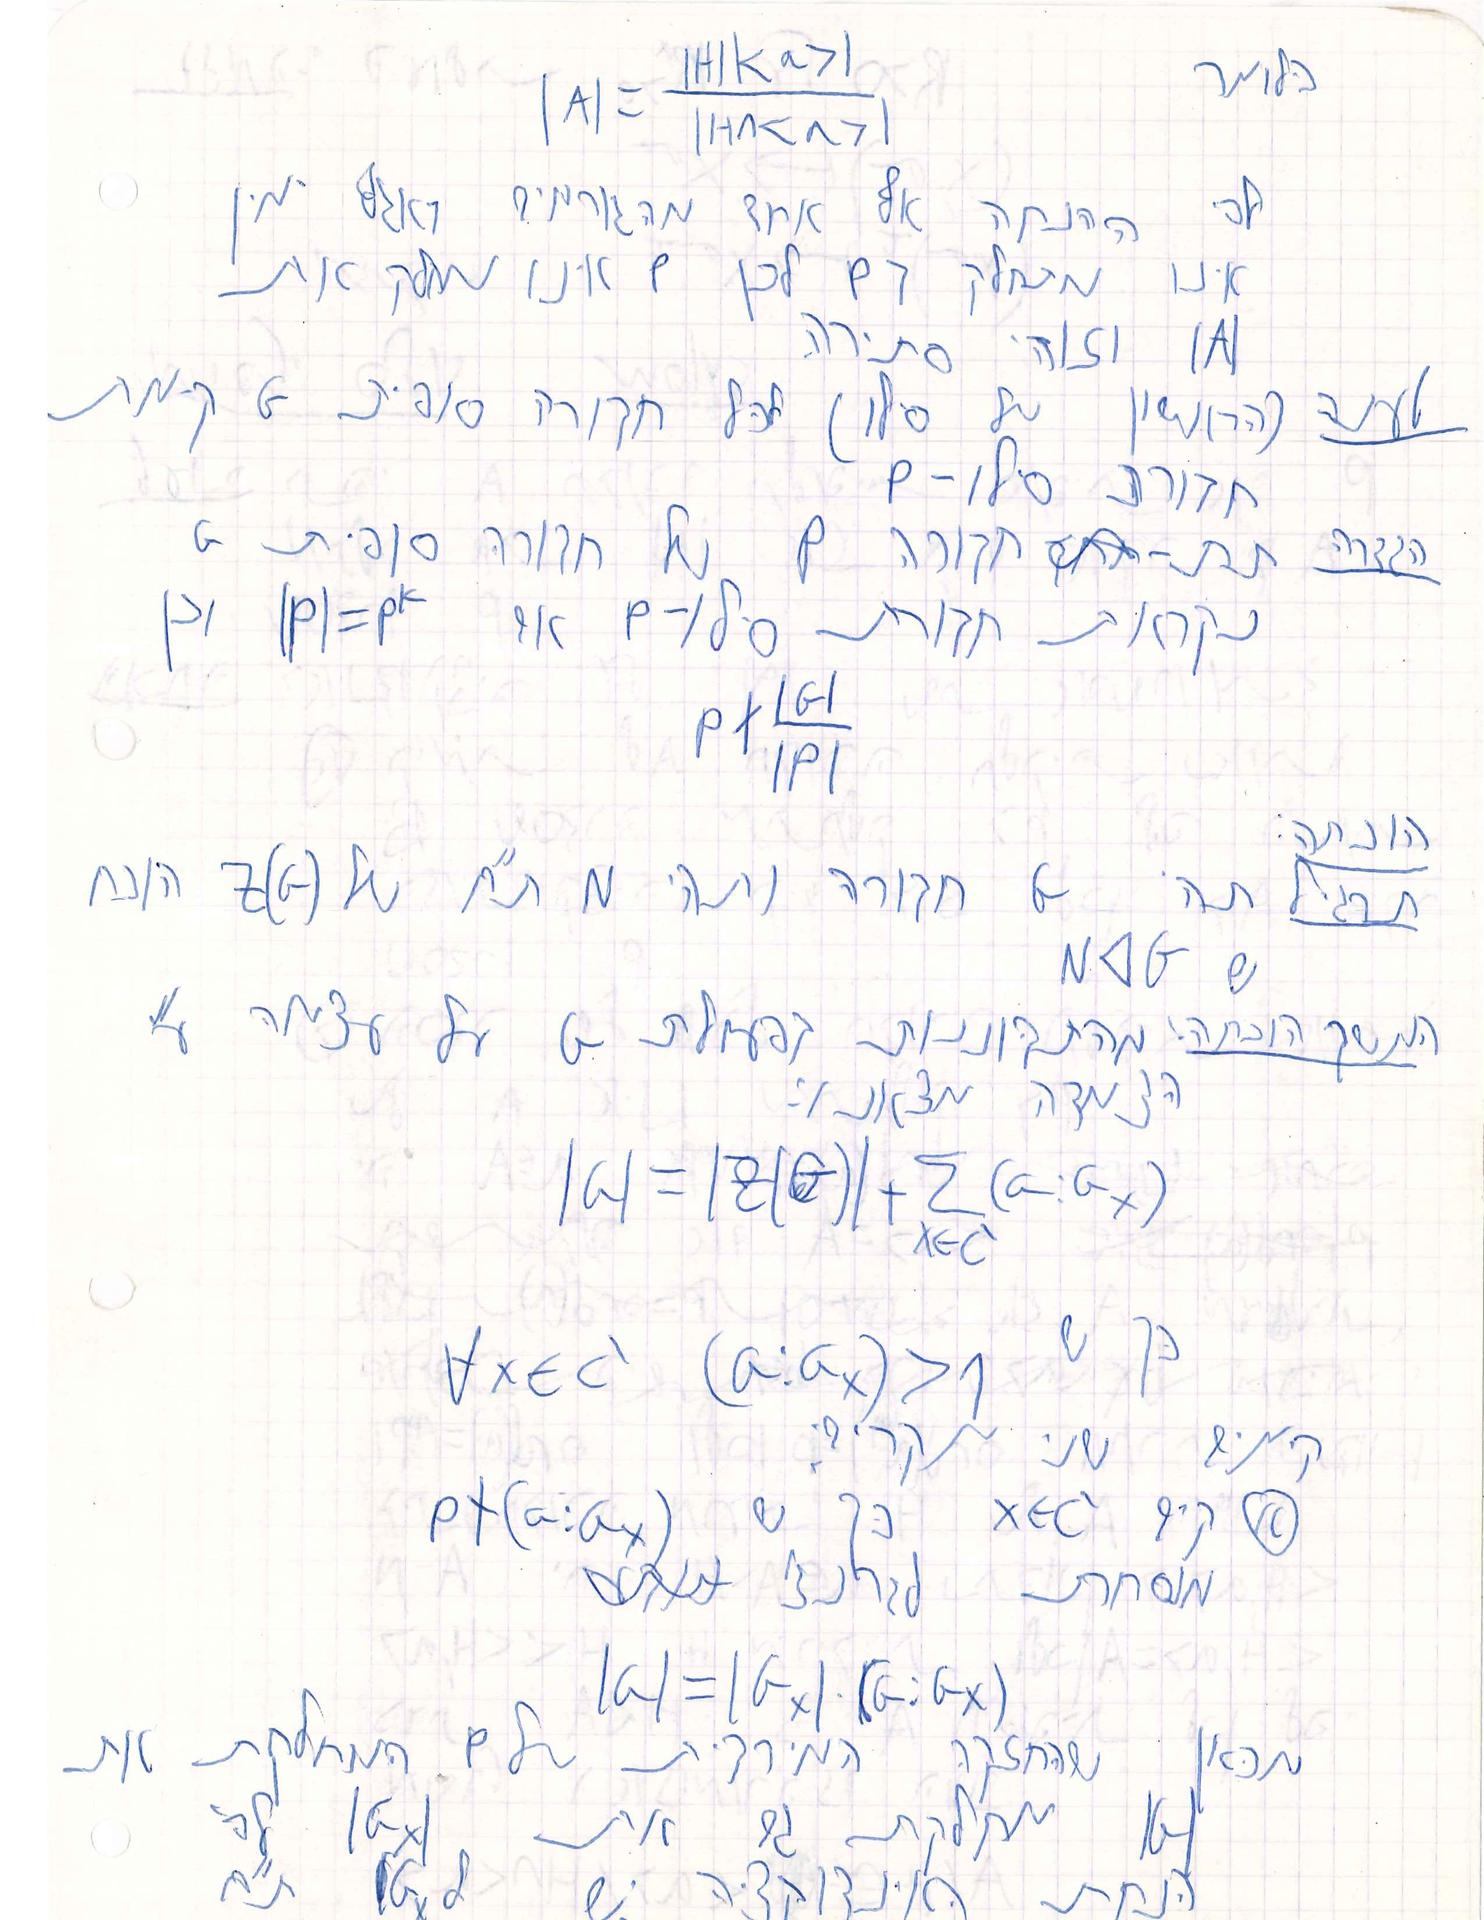 כלומר |A| = \frac{|H||<a>|}{|H∩<a>|}
לפי ההנחה אף אחד מהגורמים באגף ימין
אינו מתחלק בp לכן p אינו מחלק את
|A| וזוהי סתירה
טענה (הראשון של סילו) לכל חבורה סופית G קיימת
חבורת סילו-p
הגדרה תת-חבורה P של חבורה סופית G
נקראת חבורת סילו-p אם |P|=p^k וכן
p∤\frac{|G|}{|P|}
הוכחה:
תרגיל תהי G חבורה ותהי N ת"ח של Z(G) הוכח
ש N◁G
המשך הוכחה: מהתבוננות בפעולת G על עצמה ע"י
הצמדה מצאנו:
|G|=|Z(G)|+\sum_{x∈C'}(G:G_x)
כך ש ∀x∈C' (G:G_x)>1
קיימים שני מקרים:
(א) קיים x∈C' כך ש p∤(G:G_x)
מנוסחת לגרנצ'
|G|=|G_x|·(G:G_x)
מכאן שהחזקה המירבית של p המחלקת את
|G| מחלקת גם את |G_x| לפי
הנחת האינדוקציה יש לG_x ת"ח